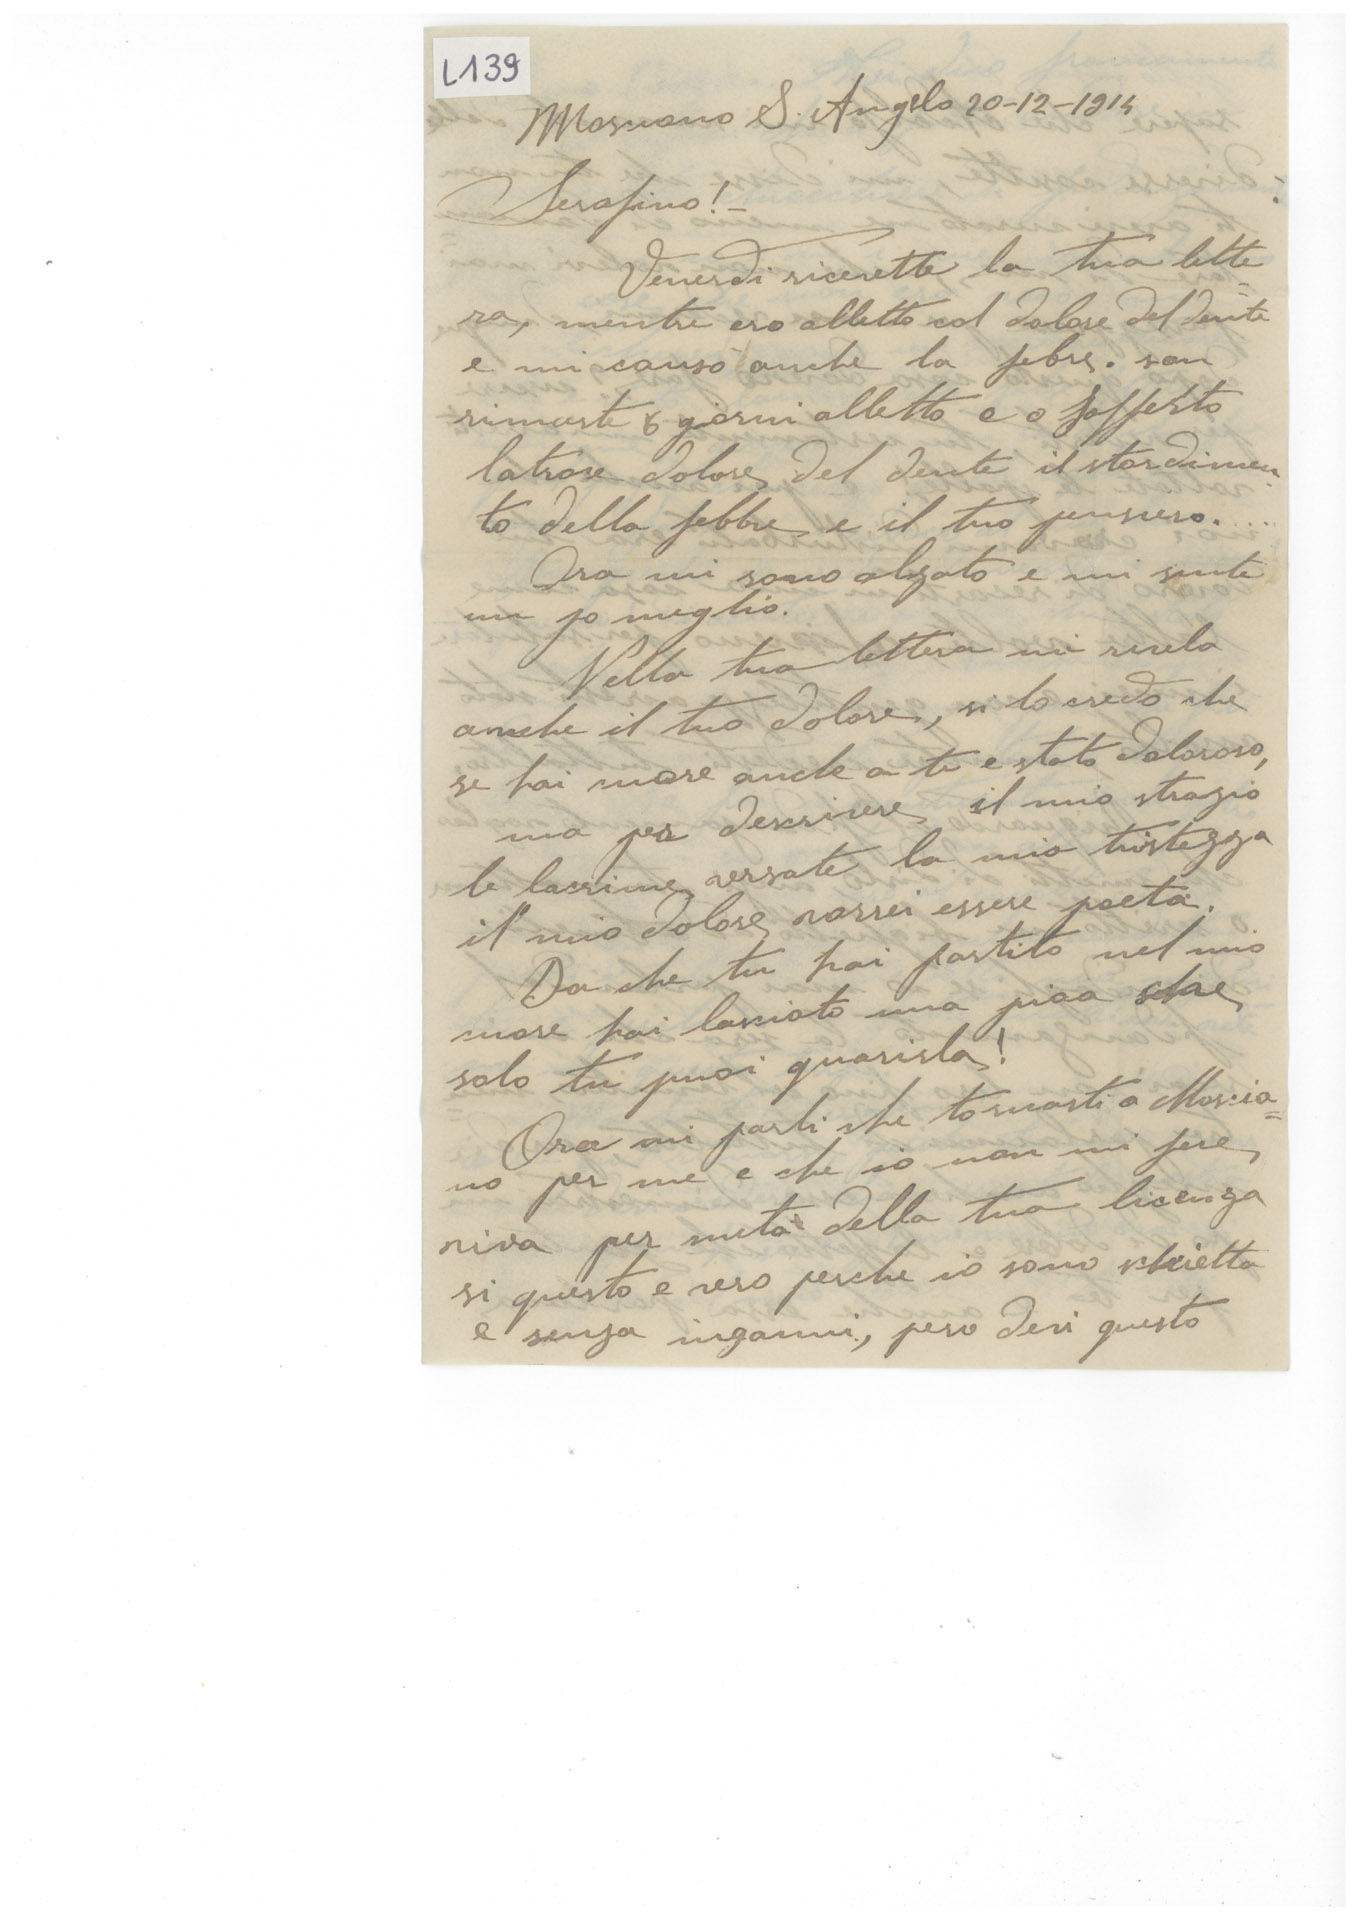 L139
Mosciano S. Angelo 20-12-1914
Serafino!-
Venerdi ricevette la tua lette=
ra, mentre ero alletto col dolore del dente
e mi causò anche la febre. son
rimaste 6 giorni alletto e o sofferto
latroce dolore del dente il stordimen
to della febbre e il tuo pensiero....
Ora mi sono alzato e mi sente
un po meglio.
Nella tua lettera mi rivela
anche il tuo dolore, si lo credo che
se hai cuore anche a te e stato doloroso,
ma per descrivere il mio strazio
le lacrime versate la mia tristezza
il mio dolore vorrei essere poeta.
Da che tu hai partito nel mio
cuore hai lasciato una piaa che
solo tu puoi guarirla!
Ora mi parli che tornasti a Moscia=
no per me e che io non mi fere
niva per metà della tua licenza
si questo e vero perche io sono schietta
e senza inganni, pero devi questo